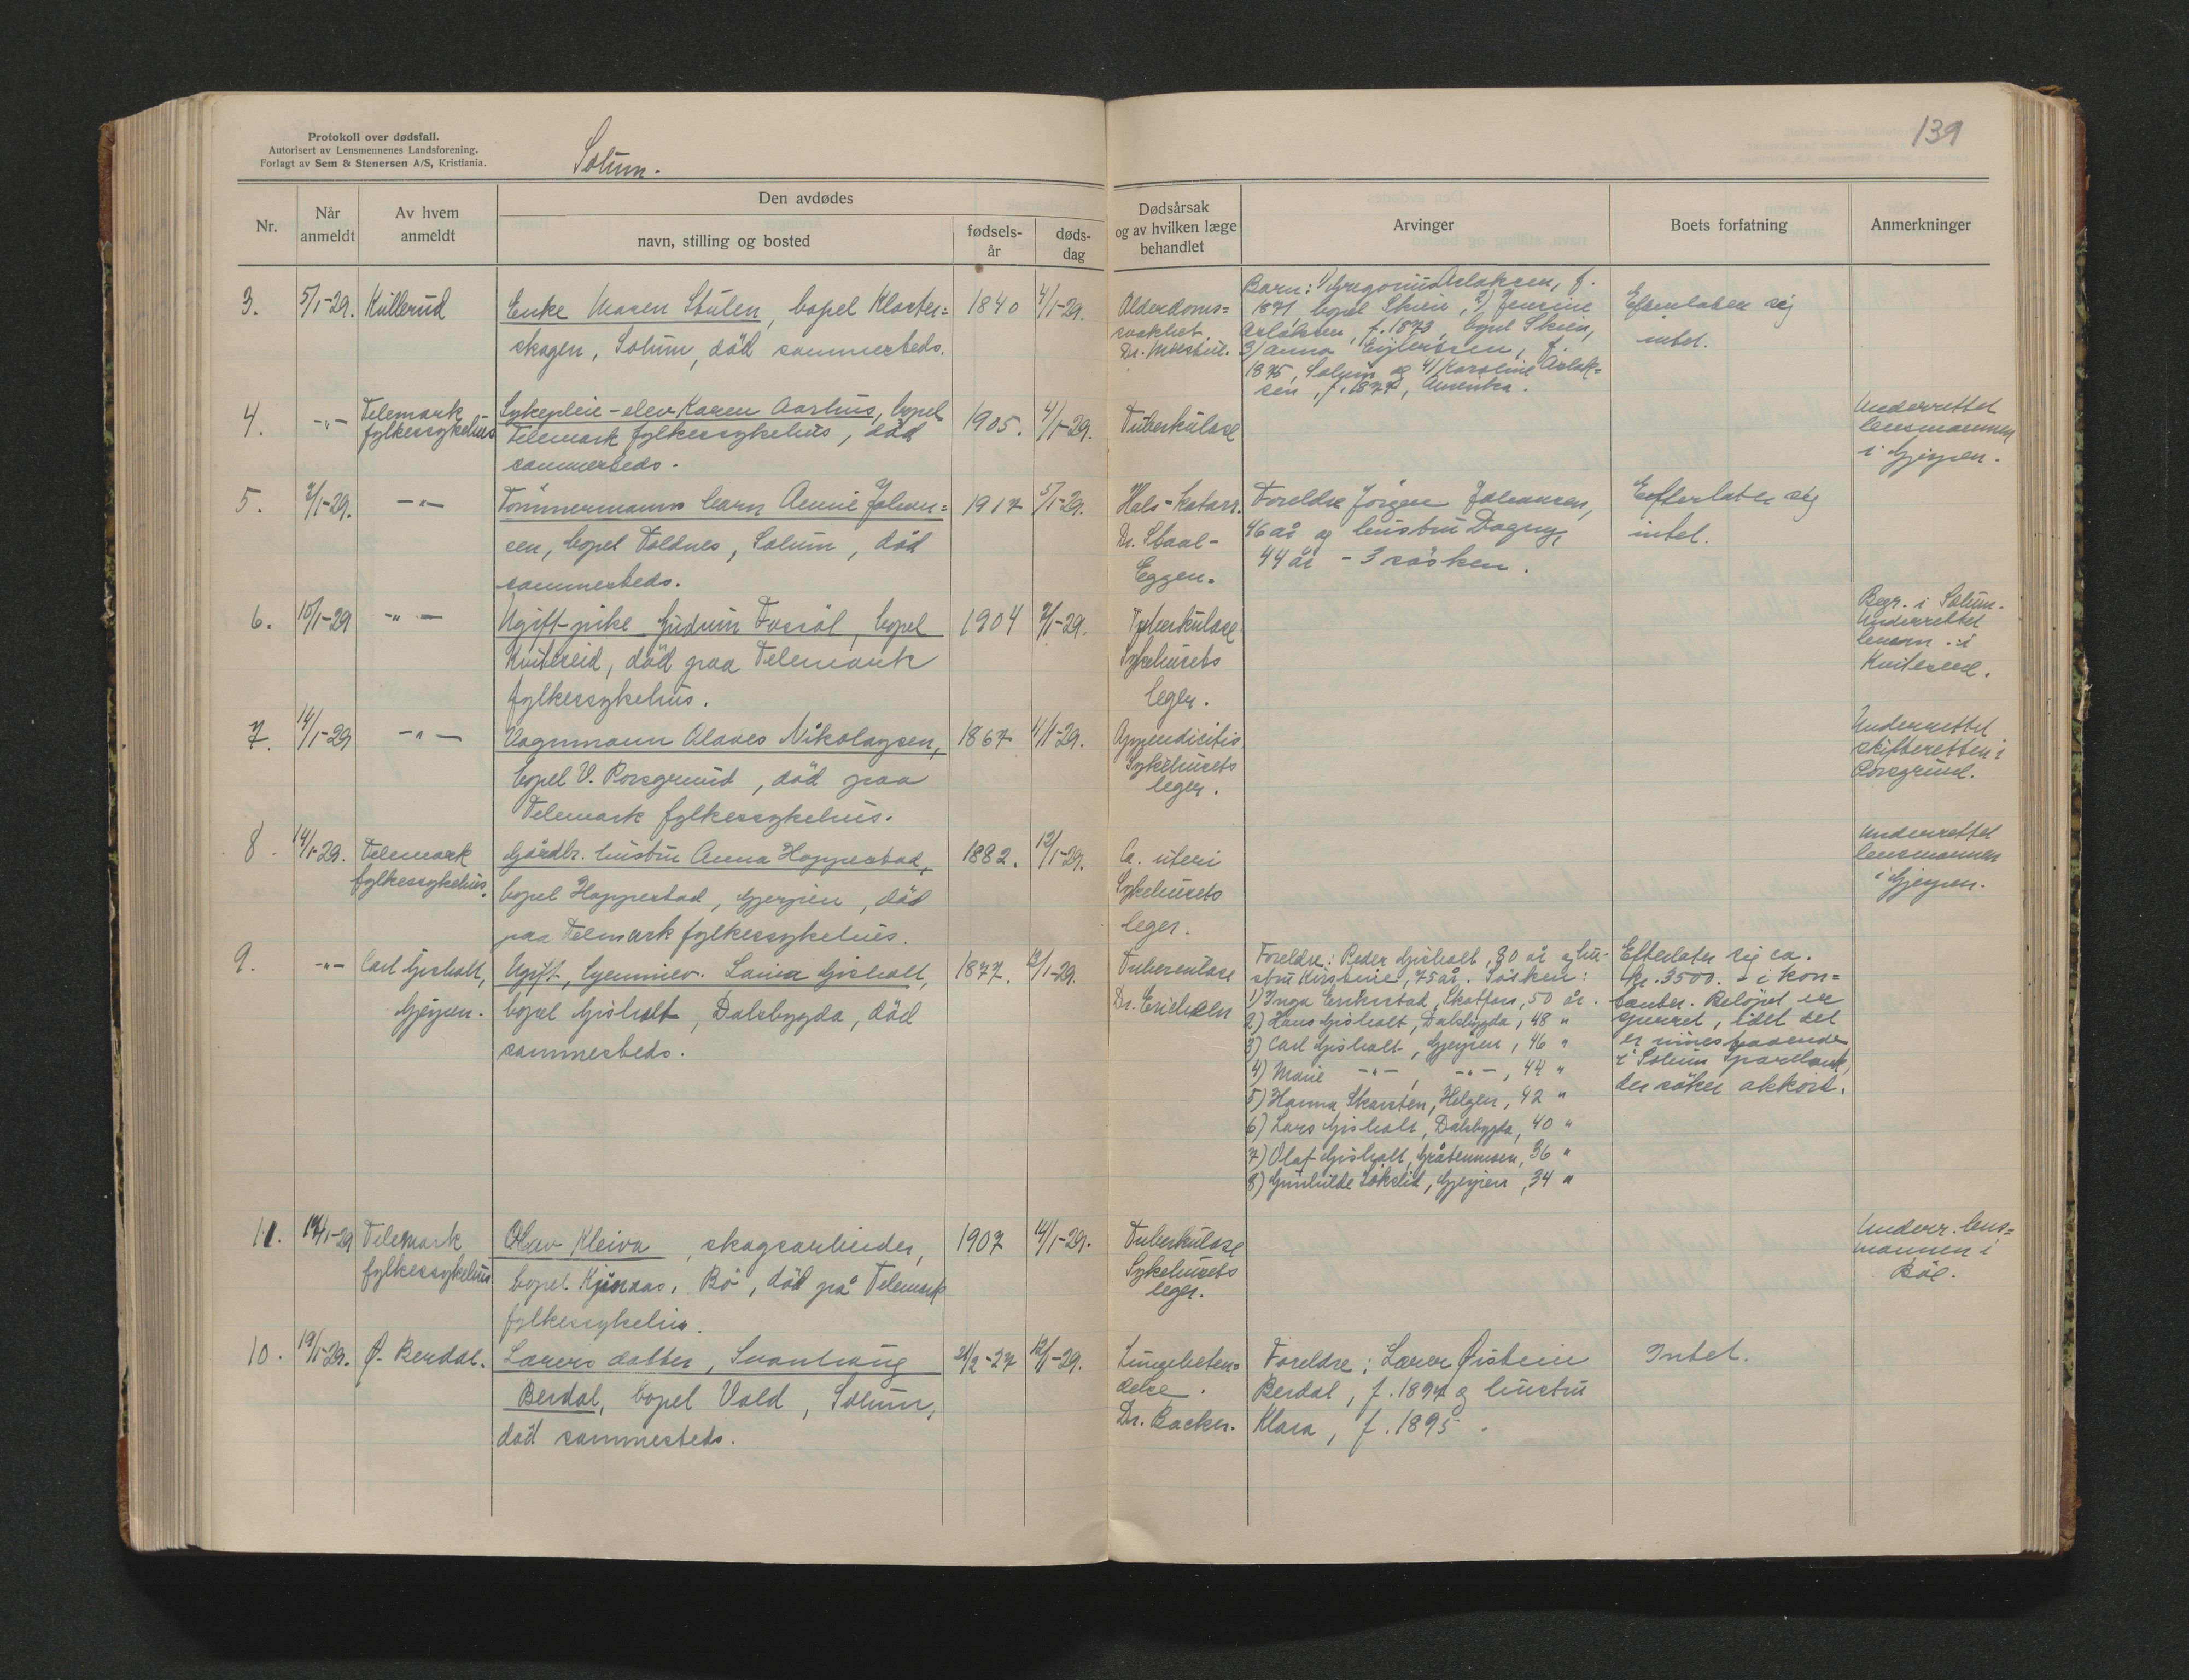 Protokoll over dødsfall.
Autorisert av Lensmennenes Landsforening.
Forlagt av Sem & Stenersen A/S, Kristiania.
Solum.
139
Nr.
Når
anmeldt
Av hvem
anmeldt
Den avdødes
navn, stilling og bosted
fødsels-
år
døds-
dag
Dødsårsak
og av hvilken læge
behandlet
Arvinger
Boets forfatning
Anmerkninger
3.
5/1-29.
Kullerud
Enke Maren Stulen, bopel Kloster=
skogen, Solum, död sammesteds.
1840
4/1-29.
Alderdoms=
svakhet.
Barn: 1) Gregorius Aslaksen, f.
1871, bopel Skien, 2) Jensine
Aslaksen, f. 1873, bopel Skien,
3) Anna f.
1875, Solum og 4) Karoline Aslak=
sen, f. 1877, Amerika.
Efterlater sig
intet.
4.
-"-
Telemark
fylkessykehus
Sykepleie-elev Karen Aarhus, bopel
Telemark fylkessykehus, död
sammesteds.
1905.
4/1-29.
Tuberkulose
Underrettet
lensmannen
i Gjerpen.
5.
7/1-29.
-"-
Tömmermanns barn Annie Johan=
sen, bopel Voldnes, Solum, död
sammesteds.
1917
5/1-29.
Hals-katarr.
Dr. Staal-
Eggen.
Foreldre Jörgen Johansen,
46 år og hustru Dagny,
44 år - 3 søsken.
Eefterlater sig
intet.
6.
10/1-29
-"-
Ugift pike Gudrun Fossöl, bopel
Kviteseid, död paa Telemark
fylkessykehus.
1904
7/1-29.
Tuberkulose
Sykehusets
leger.
Begr. i Solum.
Underrettet
lensm. i
Kviteseid.
7.
14/1-29
-"-
Vognmann Olaves Nikolaysen,
bopel V. Porsgrund, död paa
Telemark fylkessykehus.
1867
11/1-29.
Appendicitis
Sykehusets
leger.
Underrettet
skifteretten i
Porsgrund.
8.
14/1-29.
Telemark
fylkessykehus.
Gårdbr. hustru Anna Hoppestad,
bopel Hoppestad, Gjerpen, död
paa Telmark fylkessykehus.
1882.
12/1-29.
Ca. uteri
Sykehusets
leger.
Underrettet
lensmannen
i Gjerpen.
9.
-"-
Carl Gisholt,
Gjerpen.
Ugift, hjemmev. Laura Gisholt,
bopel Gisholt, Dalsbygda, död
sammesteds.
1877.
12/1-29.
Tuberculose
Dr. Erichsen
Foreldre: Peder Gisholt, 80 år og hu-
stru Kirstine, 75 år. Søsken:
1) Inga Eriksstad, Skotfoss, 50 år.
2) Hans Gisholt, Dalsbygda, 48 "
3) Carl Gisholt, Gjerpen, 46 "
4) Marie -"-, -"-, 44 "
5) Hanna Skarsten, Helgen, 42 "
6) Lars Gisholt, Dalsbygda, 40 "
7) Olaf Gisholt, Gråtenmoen, 36 "
8) Gunhilde Løkslid, Gjerpen, 34 "
Efterlater sig ca.
kr. 3500. - i kon=
tanter. Belöpet er
sperret, idet det
er innestaaende
i Solum Sparebank,
der söker akkord.
11.
14/1-29
Telemark
fylkessykehus
Olav Kleiva, skogsarbeider,
bopel Bø, död på Telemark
fylkessykehus.
1907
14/1-29.
Tuberkulose
Sykehusets
leger.
Underr. lens=
mannen i
Böe.
10.
19/1-29.
Ø. Berdal.
Lærers datter, Svanhaug
Berdal, bopel Vold, Solum,
död sammesteds.
21/2-27
12/1-29.
Lungebeten=
delse.
Dr. Backer.
Foreldre: Lærer Øistein
Berdal, f. 1894 og hustru
Klara, f. 1895.
Intet.